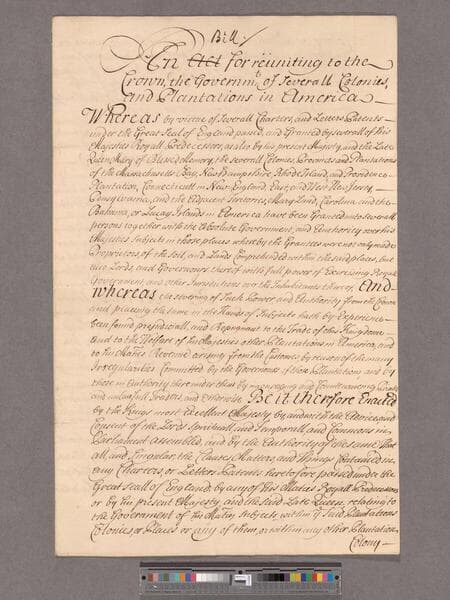 Bill /
An Act for reuniting to the
Crown, the Governmt. of Severall Colonies,
and Plantations in America
Whereas by virtue of Severall Charters, and Letters Patents
under the Great Seal of England passed, and Granted by severall of His
Majesties Royall Predecessors, as also by his present Majesty and the Late
Queen Mary of Blessed Memory, the severall Colonies, Provinces and Plantations
of the Massachusetts Bay, New Hampshire, Rhode Island, and Providence
Plantation, Connecticutt in New England, East, and West New Jersey,
Pensylvania, and the Adjacent Territories, Mary Land, Carolina and the
Bahama, or Lucay Islands in America have been Granted to severall
persons together with the Absolute Government, and Authority over his
Majesties Subjects in those places whereby the Grantees were not only made
Proprietors of the Soil, and Land Comprehended within the said places, but
also Lords, and Governours thereof with full power of Exercising Royall
Government, and other Jurisdictions over the Inhabitants thereof, And
whereas the severing of such Power and Authority from the Crown
and placing the same in the Hands of Subjects hath by Experience
been found prejudiciall, and Repugnant to the Trade of this Kingdome
and to the Welfare of his Majesties other Plantations in America, and
to his Maties Revenue arising from the Customes by reason of the many
Irregularities Committed by the Governours of those Plantations and by
those in Authority there under them by encouraging and Countenancing Pirates
and unlawfull Traders and otherwise Be it therefore Enacted
by the Kings most Excellent Majesty by and with the Advice and
Consent of the Lords Spirituall, and Temporall and Commons in
Parliament assembled, and by the Authority of the same that
all, and Singular, the Clauses, Matters, and things Contained in
any Charters, or Letters Patents heretofore passed under the
Great Seall of England by any of his Maties Royall Predecessors
or by his present Majesty and the said Late Queen relating to
the Government of his Maties Subjects within ye said Plantations
Colonies, or Places or any of them, or within any other Plantation,
Colony